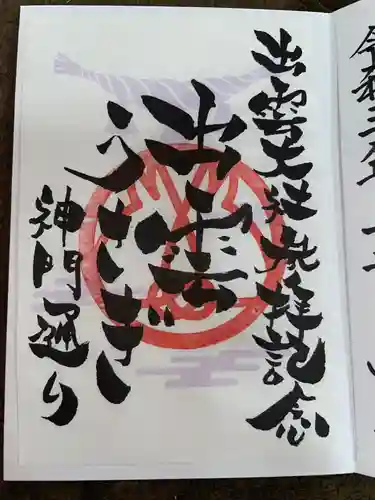 令和三年十
出雲大社参拝記念
出雲
うさぎ
神門通り